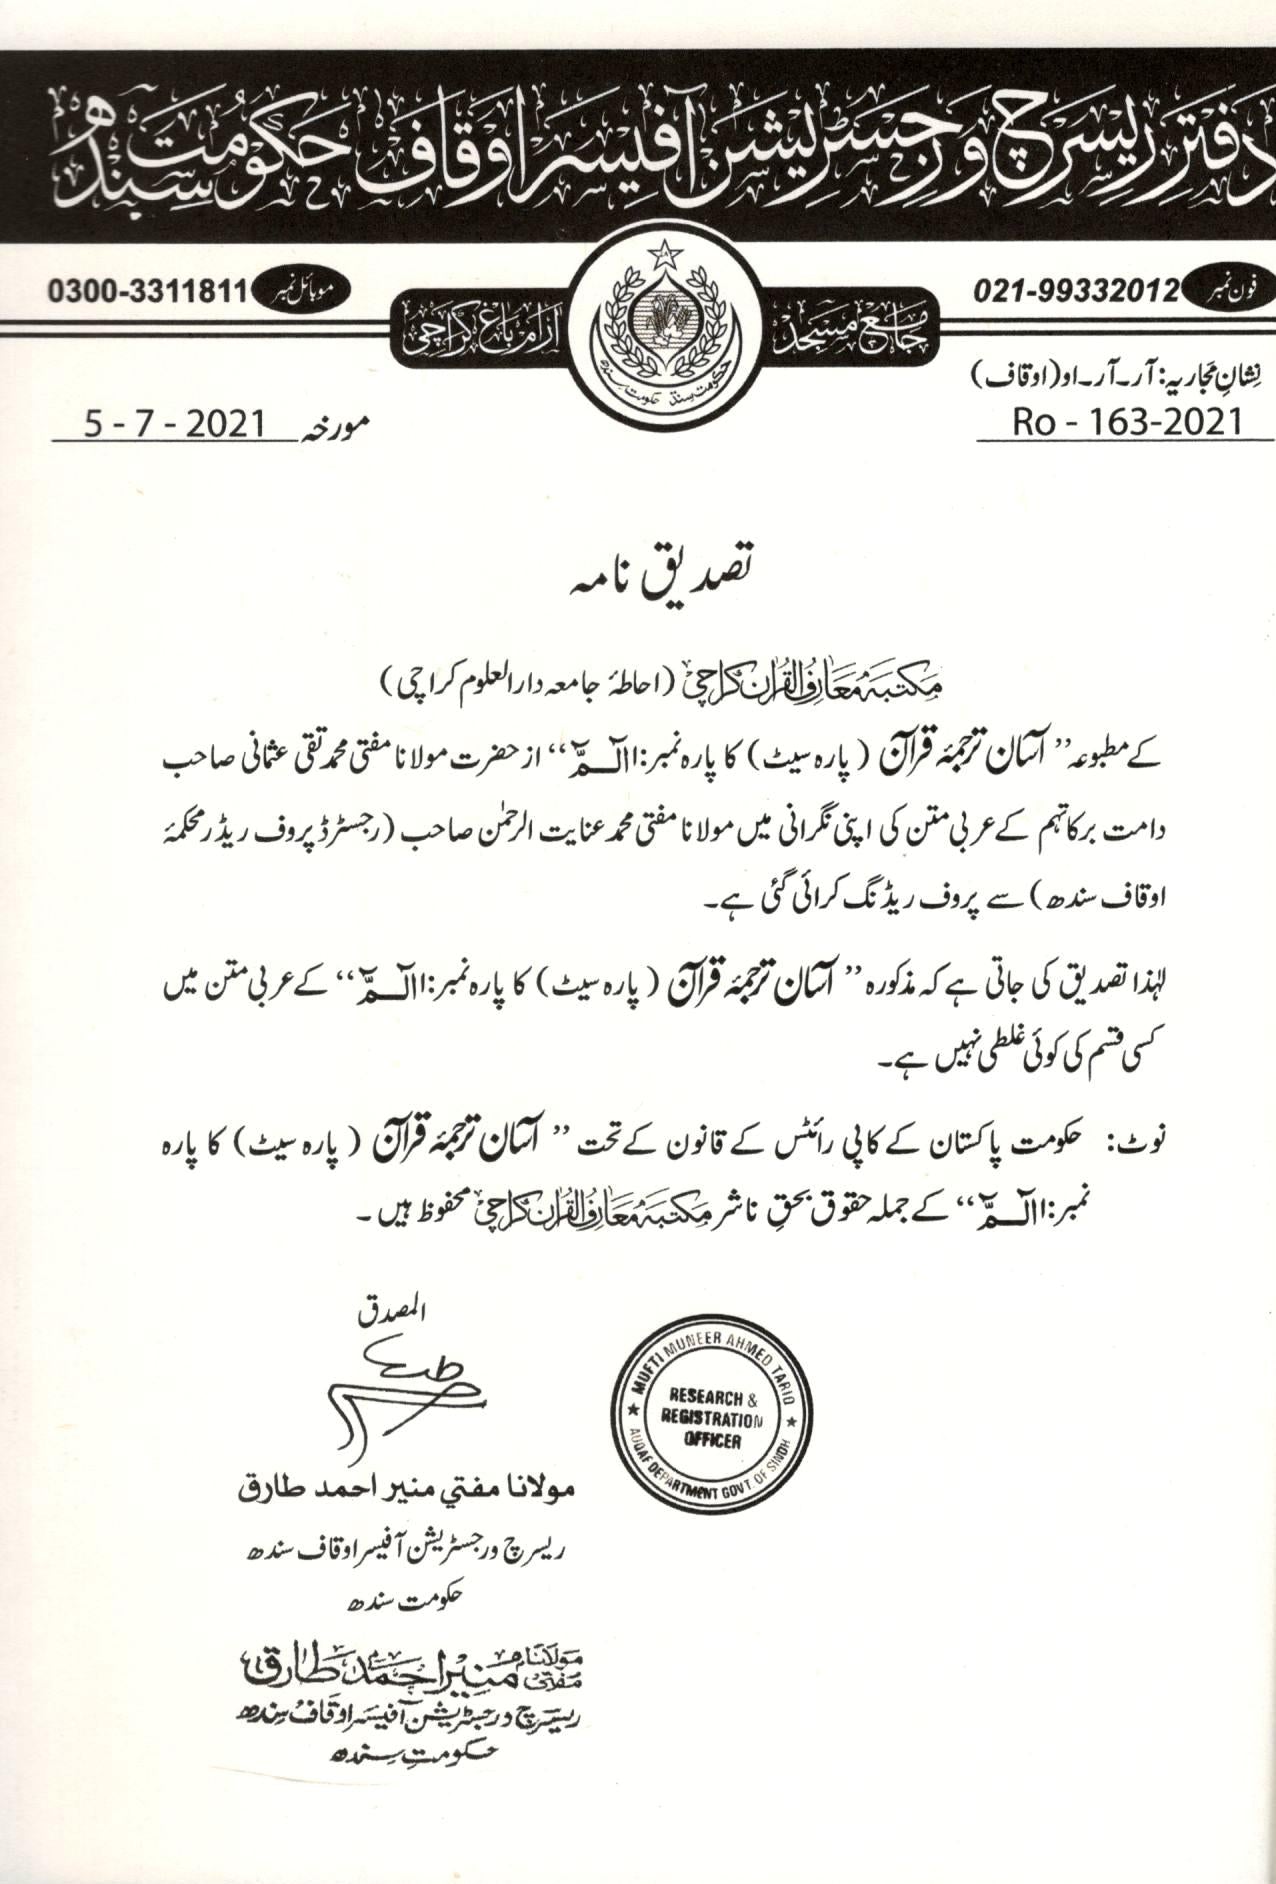 دفتر ریسرچ و رجسٹریشن آفیسر اوقاف حکومت سندھ
فون نمبر 021-99332012
موبائل نمبر 0300-3311811
جامع مسجد آرام باغ کراچی
حکومت سندھ
نشانِ مجاریہ: آر۔آر۔او (اوقاف)
Ro - 163-2021
مورخہ 5 - 7 - 2021
تصدیق نامہ
مکتبہ معارف القرآن کراچی (احاطۂ جامعہ دارالعلوم کراچی)
کے مطبوعہ ”آسان ترجمۂ قرآن (پارہ سیٹ) کا پارہ نمبر: ۱ الٓـمّٓ“ از حضرت مولانا مفتی محمد تقی عثمانی صاحب
دامت برکاتہم کے عربی متن کی اپنی نگرانی میں مولانا مفتی محمد عنایت الرحمٰن صاحب (رجسٹرڈ پروف ریڈر محکمۂ
اوقاف سندھ) سے پروف ریڈنگ کرائی گئی ہے۔
لہٰذا تصدیق کی جاتی ہے کہ مذکورہ ”آسان ترجمۂ قرآن (پارہ سیٹ) کا پارہ نمبر: ۱ الٓـمّٓ“ کے عربی متن میں
کسی قسم کی کوئی غلطی نہیں ہے۔
نوٹ: حکومت پاکستان کے کاپی رائٹس کے قانون کے تحت ”آسان ترجمۂ قرآن (پارہ سیٹ) کا پارہ
نمبر: ۱ الٓـمّٓ“ کے جملہ حقوق بحقِ ناشر مکتبہ معارف القرآن کراچی محفوظ ہیں۔
المصدق
MUFTI MUNEER AHMED TARIQ
RESEARCH &
REGISTRATION
OFFICER
AUQAF DEPARTMENT GOVT. OF SINDH
مولانا مفتي منير احمد طارق
ریسرچ ورجسٹریشن آفیسر اوقاف سندھ
حکومت سندھ
مولانا مفتی منیر احمد طارق
ریسرچ ورجسٹریشن آفیسر اوقاف سندھ
حکومتِ سندھ